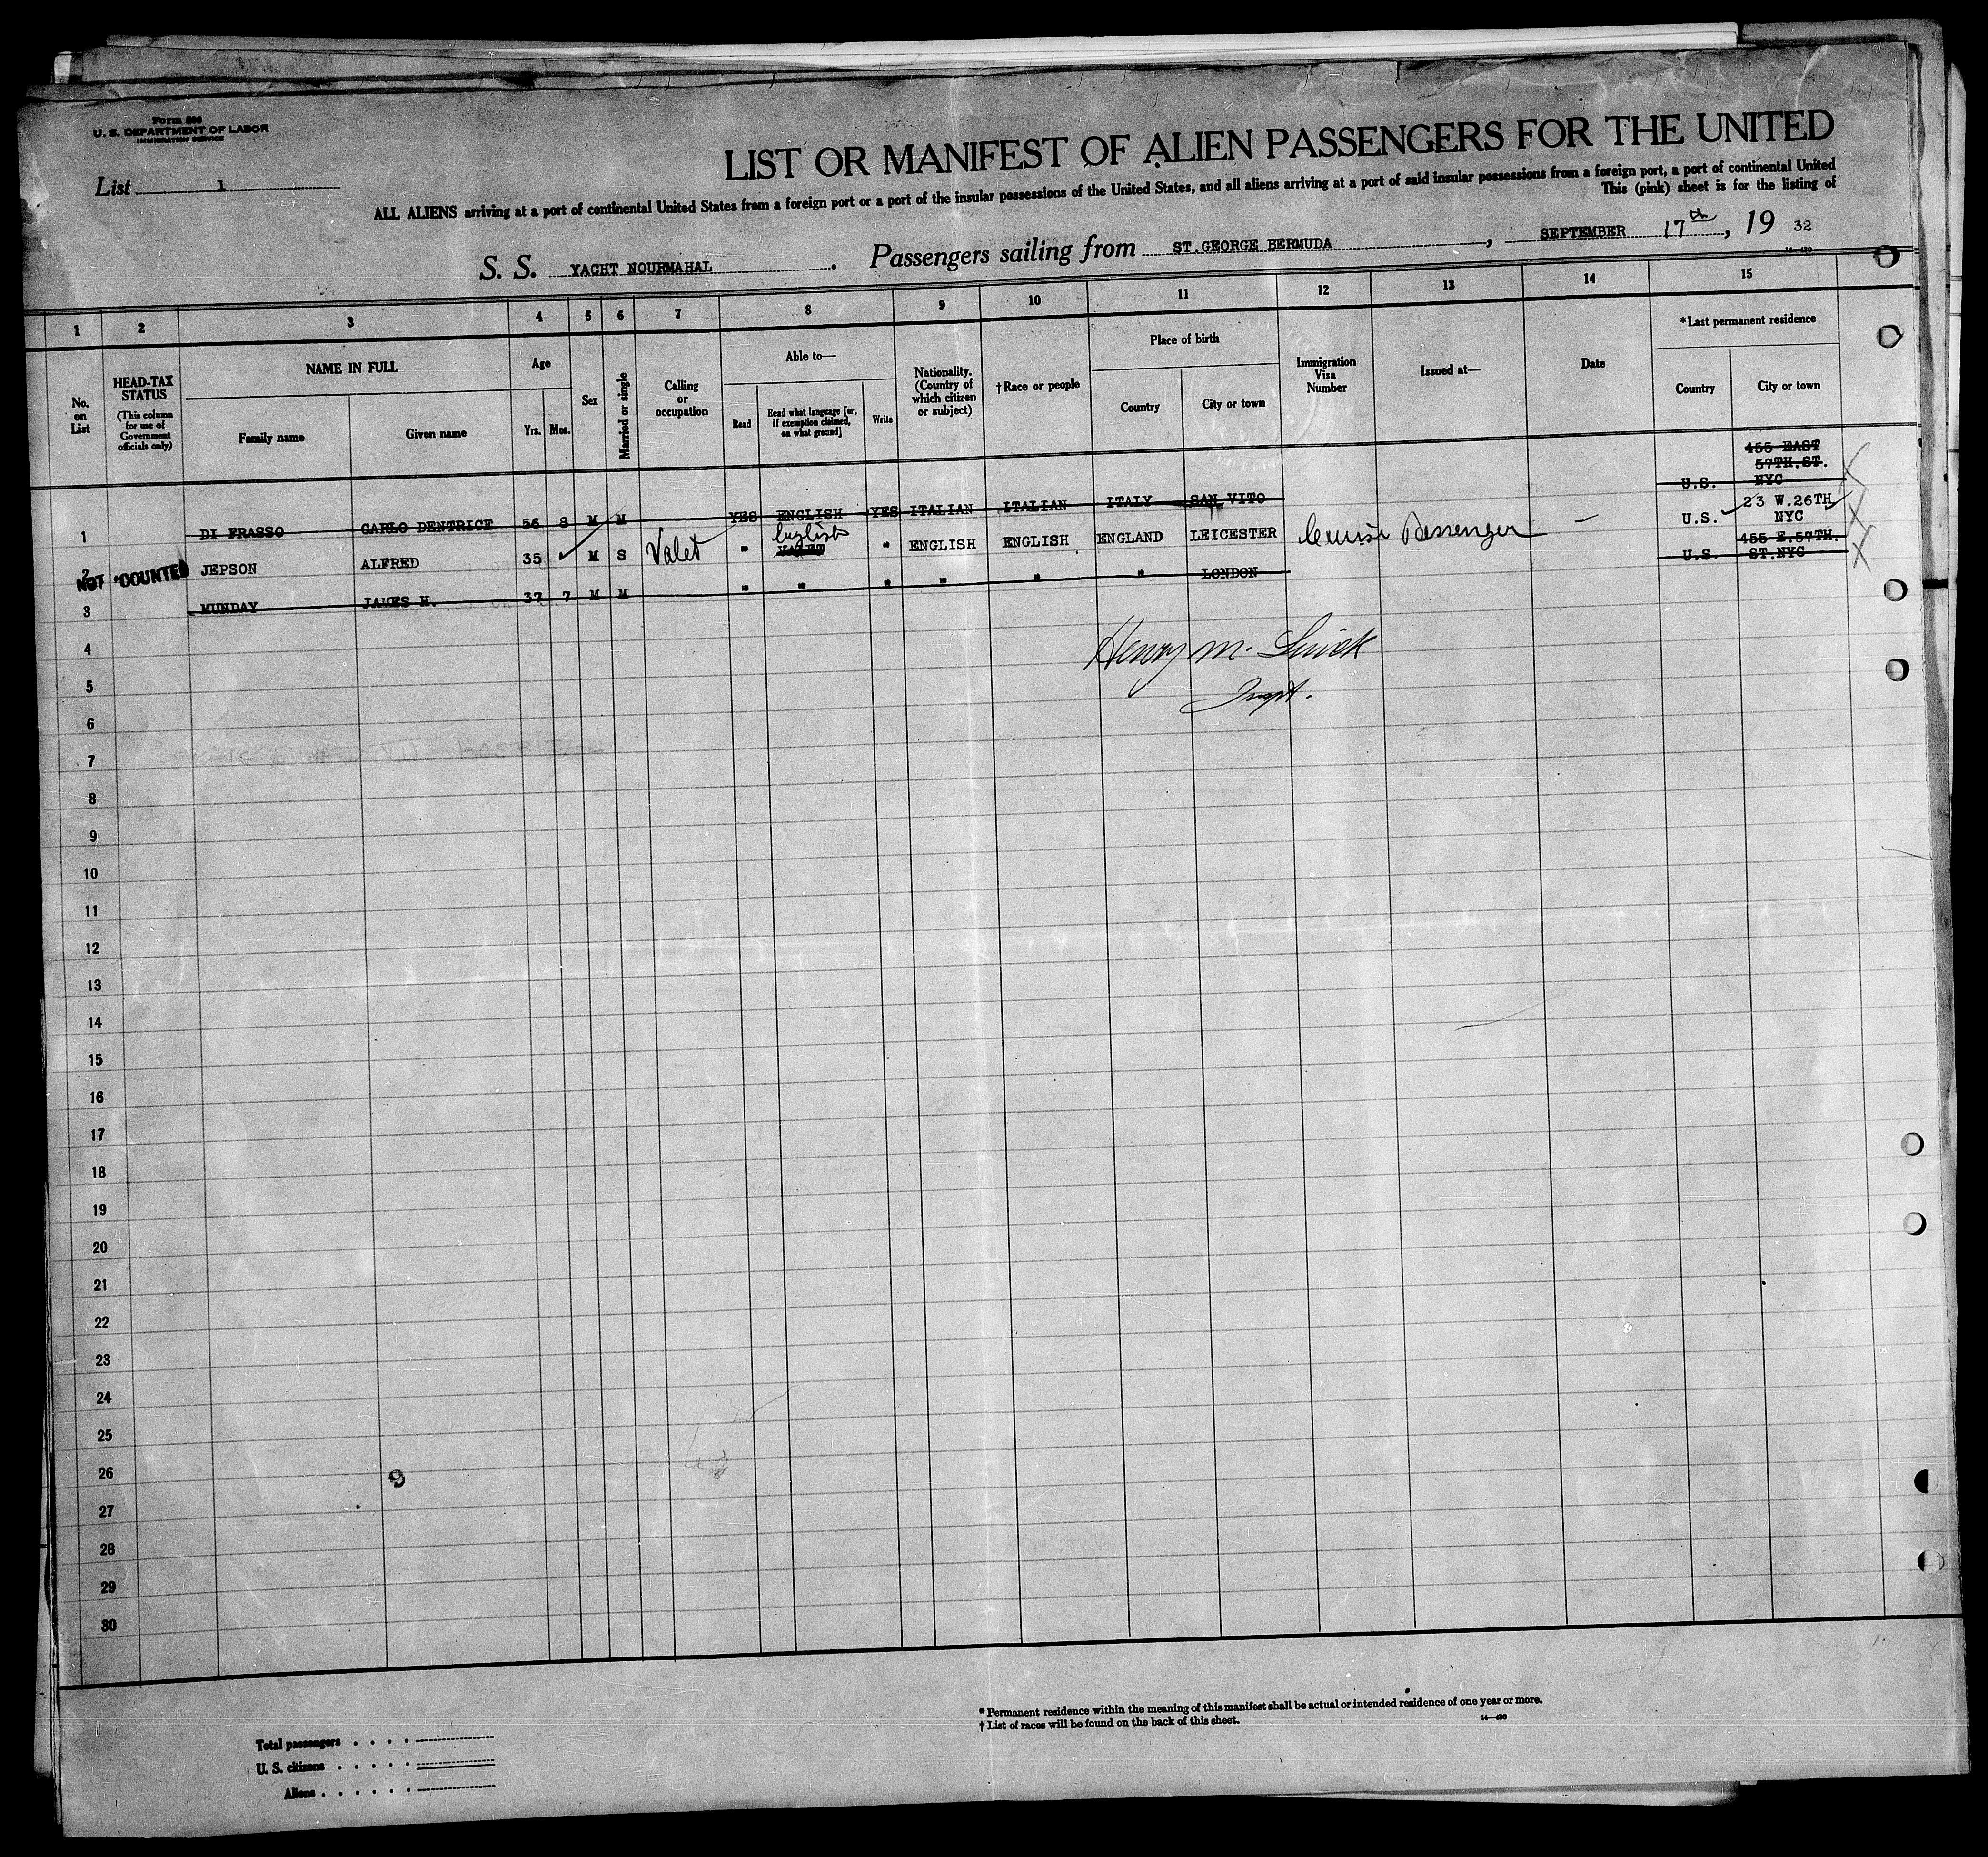 Form 500
U. S. DEPARTMENT OF LABOR
IMMIGRATION SERVICE
List 1
LIST OR MANIFEST OF ALIEN PASSENGERS FOR THE UNITED
ALL ALIENS arriving at a port of continental United States from a foreign port or a port of the insular possessions of the United States, and all aliens arriving at a port of said insular possessions from a foreign port, a port of continental United
This (pink) sheet is for the listing of
S. S. YACHT NOURMAHAL. Passengers sailing from ST.GEORGE BERMUDA, SEPTEMBER 17th, 19 32
1 2 3 4 5 6 7 8 9 10 11 12 13 14 15
No. on List
HEAD-TAX STATUS
(This column for use of Government officials only)
NAME IN FULL
Family name Given name
Age
Yrs. Mos.
Sex
Married or single
Calling or occupation
Able to—
Read Read what language [or, if exemption claimed, on what ground] Write
Nationality. (Country of which citizen or subject)
†Race or people
Place of birth
Country City or town
Immigration Visa Number
Issued at—
Date
*Last permanent residence
Country City or town
1 DI FRASSO CARLO DENTRICE 56 8 M M YES ENGLISH YES ITALIAN ITALIAN ITALY SAN VITO U.S. 455 EAST 57TH.ST. NYC
2 JEPSON ALFRED 35 M S Valet " English VALET " ENGLISH ENGLISH ENGLAND LEICESTER Cruise Passenger — U.S. 23 W.26TH NYC
NOT COUNTED
3 MUNDAY JAMES H. 37 7 M M " " " " " " LONDON U.S. 455 E.57TH. ST.NYC
4
Henry M.
Inspt.
5
6
7
8
9
10
11
12
13
14
15
16
17
18
19
20
21
22
23
24
25
26
27
28
29
30
* Permanent residence within the meaning of this manifest shall be actual or intended residence of one year or more.
† List of races will be found on the back of this sheet.
14—430
Total passengers . . . .
U. S. citizens . . . . .
Aliens . . . . . .